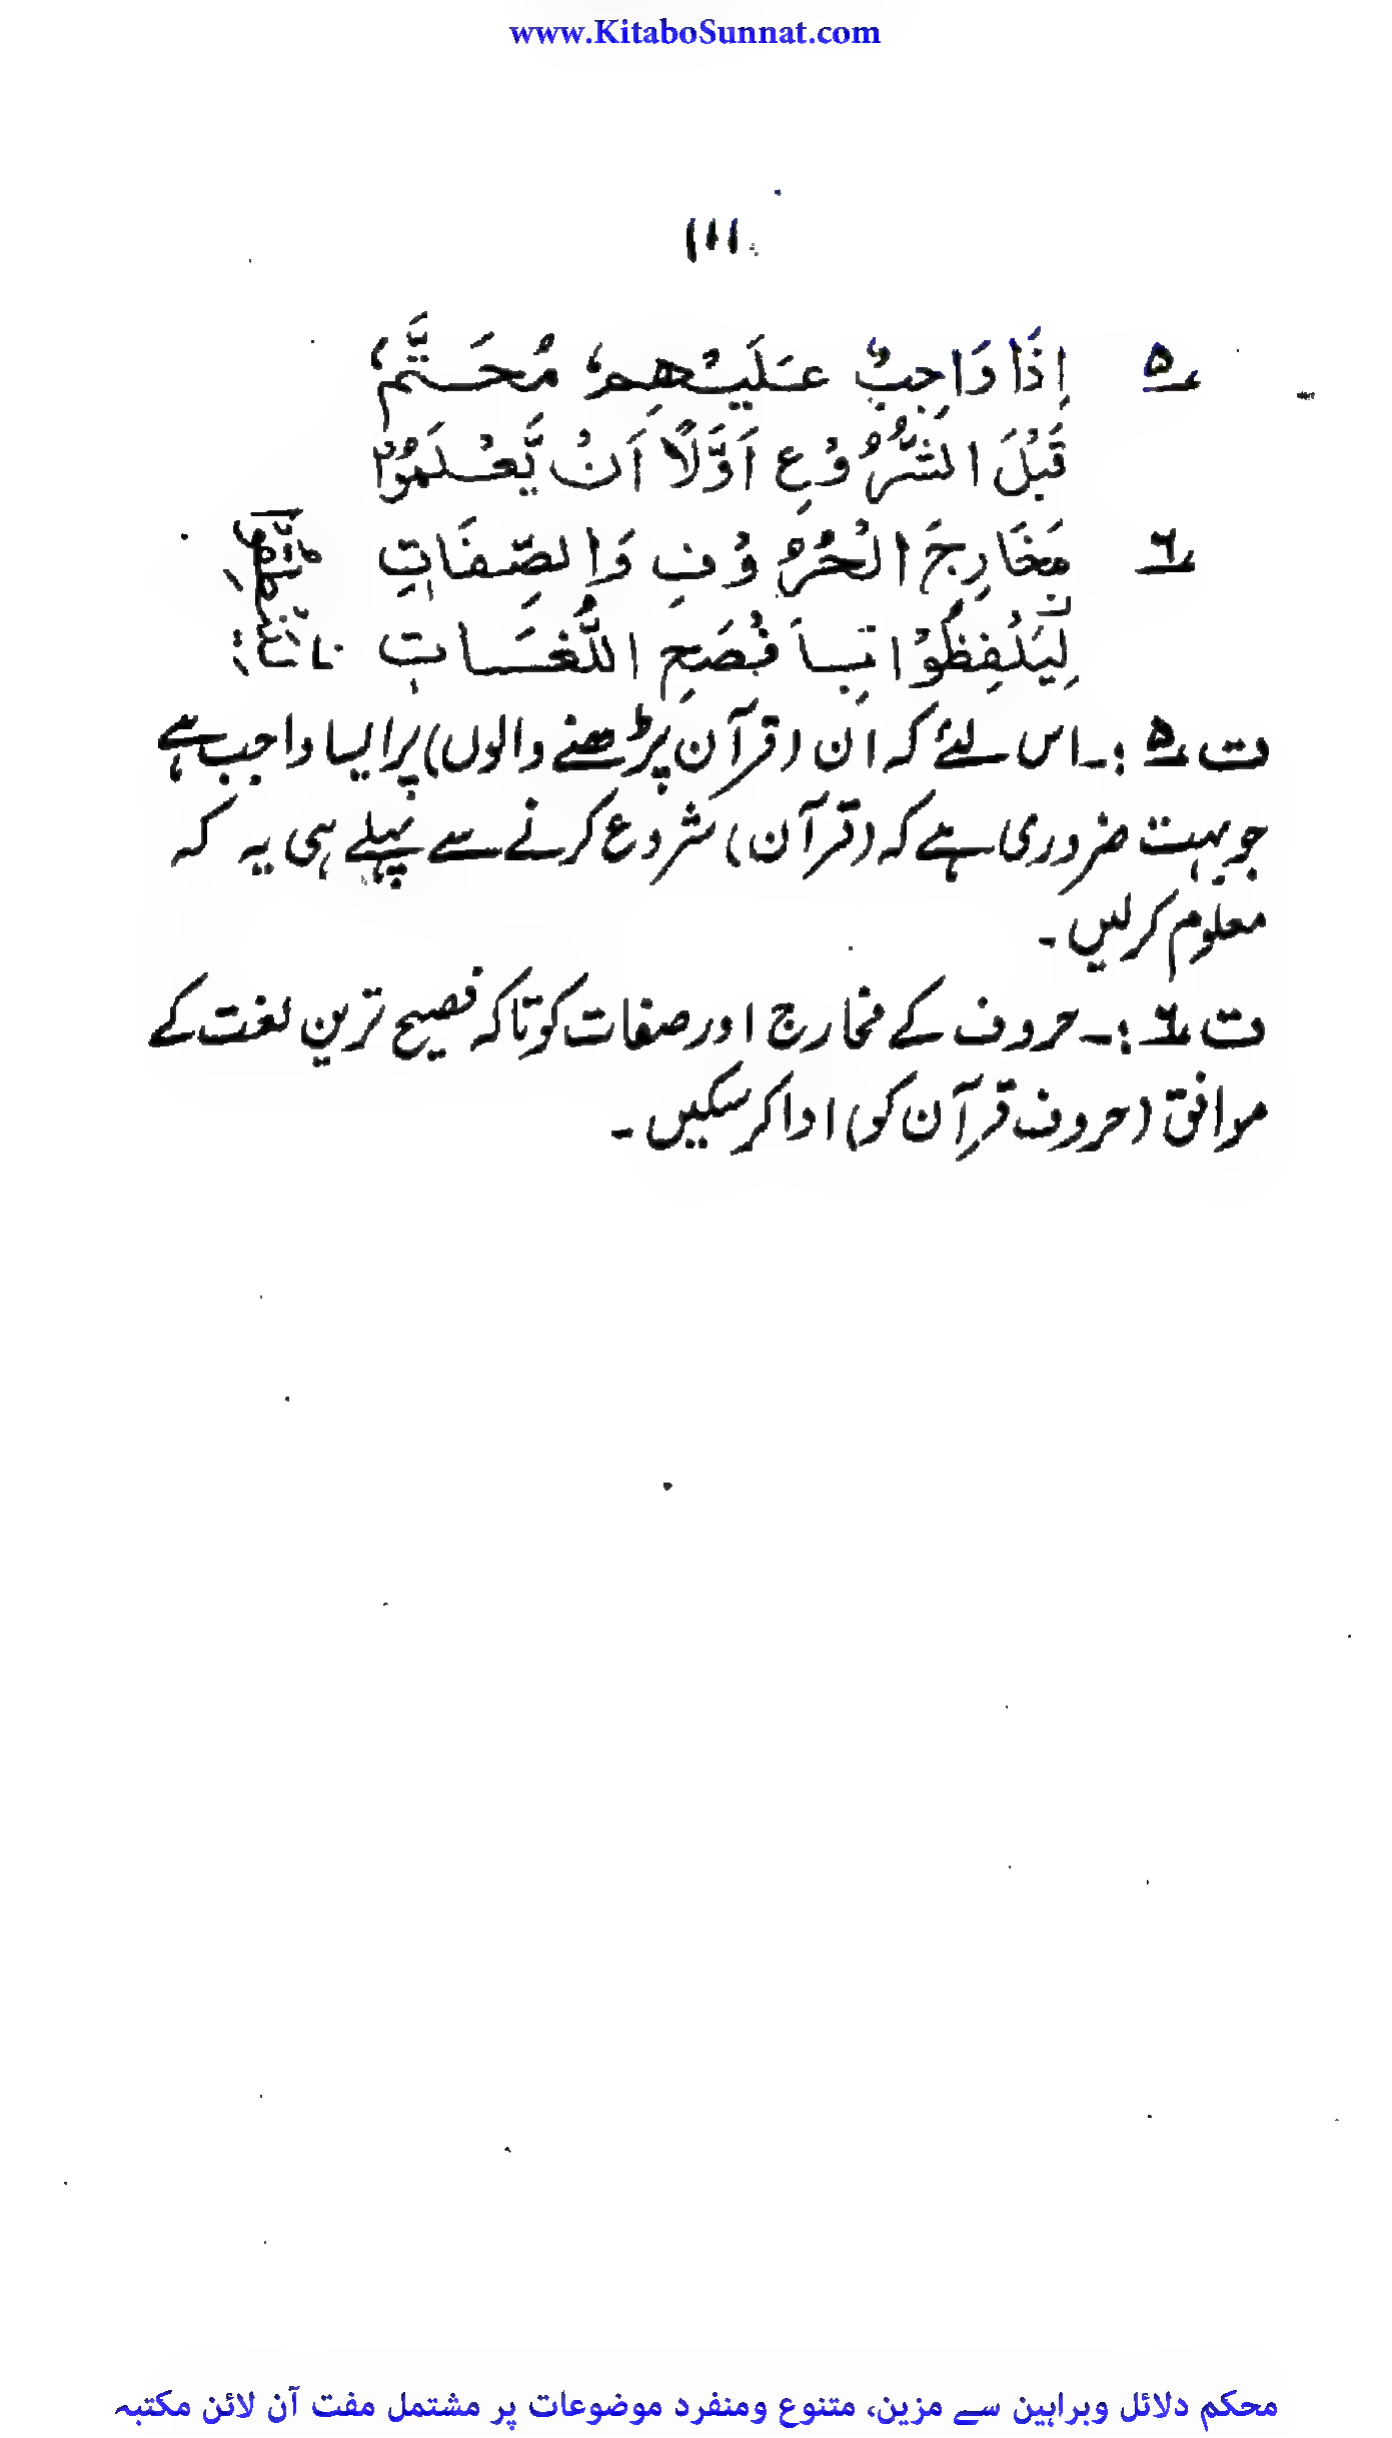 www.KitaboSunnat.com
۱۱۱
۵؎ اِذَا وَاجِبٌ عَلَیْهِمُ مُحَتَّمُ
قَبْلَ الشُّرُوْعِ اَوَّلًا اَنْ یَّعْلَمُوْا
۶؎ مَخَارِجَ الْحُرُوْفِ وَالصِّفَاتِ
لِیَلْفِظُوْا بِاَفْصَحِ اللُّغَاتِ
ت ۵؎ :۔ اس لئے کہ ان (قرآن پڑھنے والوں) پر ایسا واجب ہے
جو بہت ضروری ہے کہ (قرآن) شروع کرنے سے پہلے ہی یہ کہ
معلوم کرلیں ۔
ت ۶؎ :۔ حروف کے مخارج اور صفات کو تاکہ فصیح ترین لغت کے
موافق (حروف قرآن کو) ادا کرسکیں ۔
محکم دلائل وبراہین سے مزین، متنوع ومنفرد موضوعات پر مشتمل مفت آن لائن مکتبہ